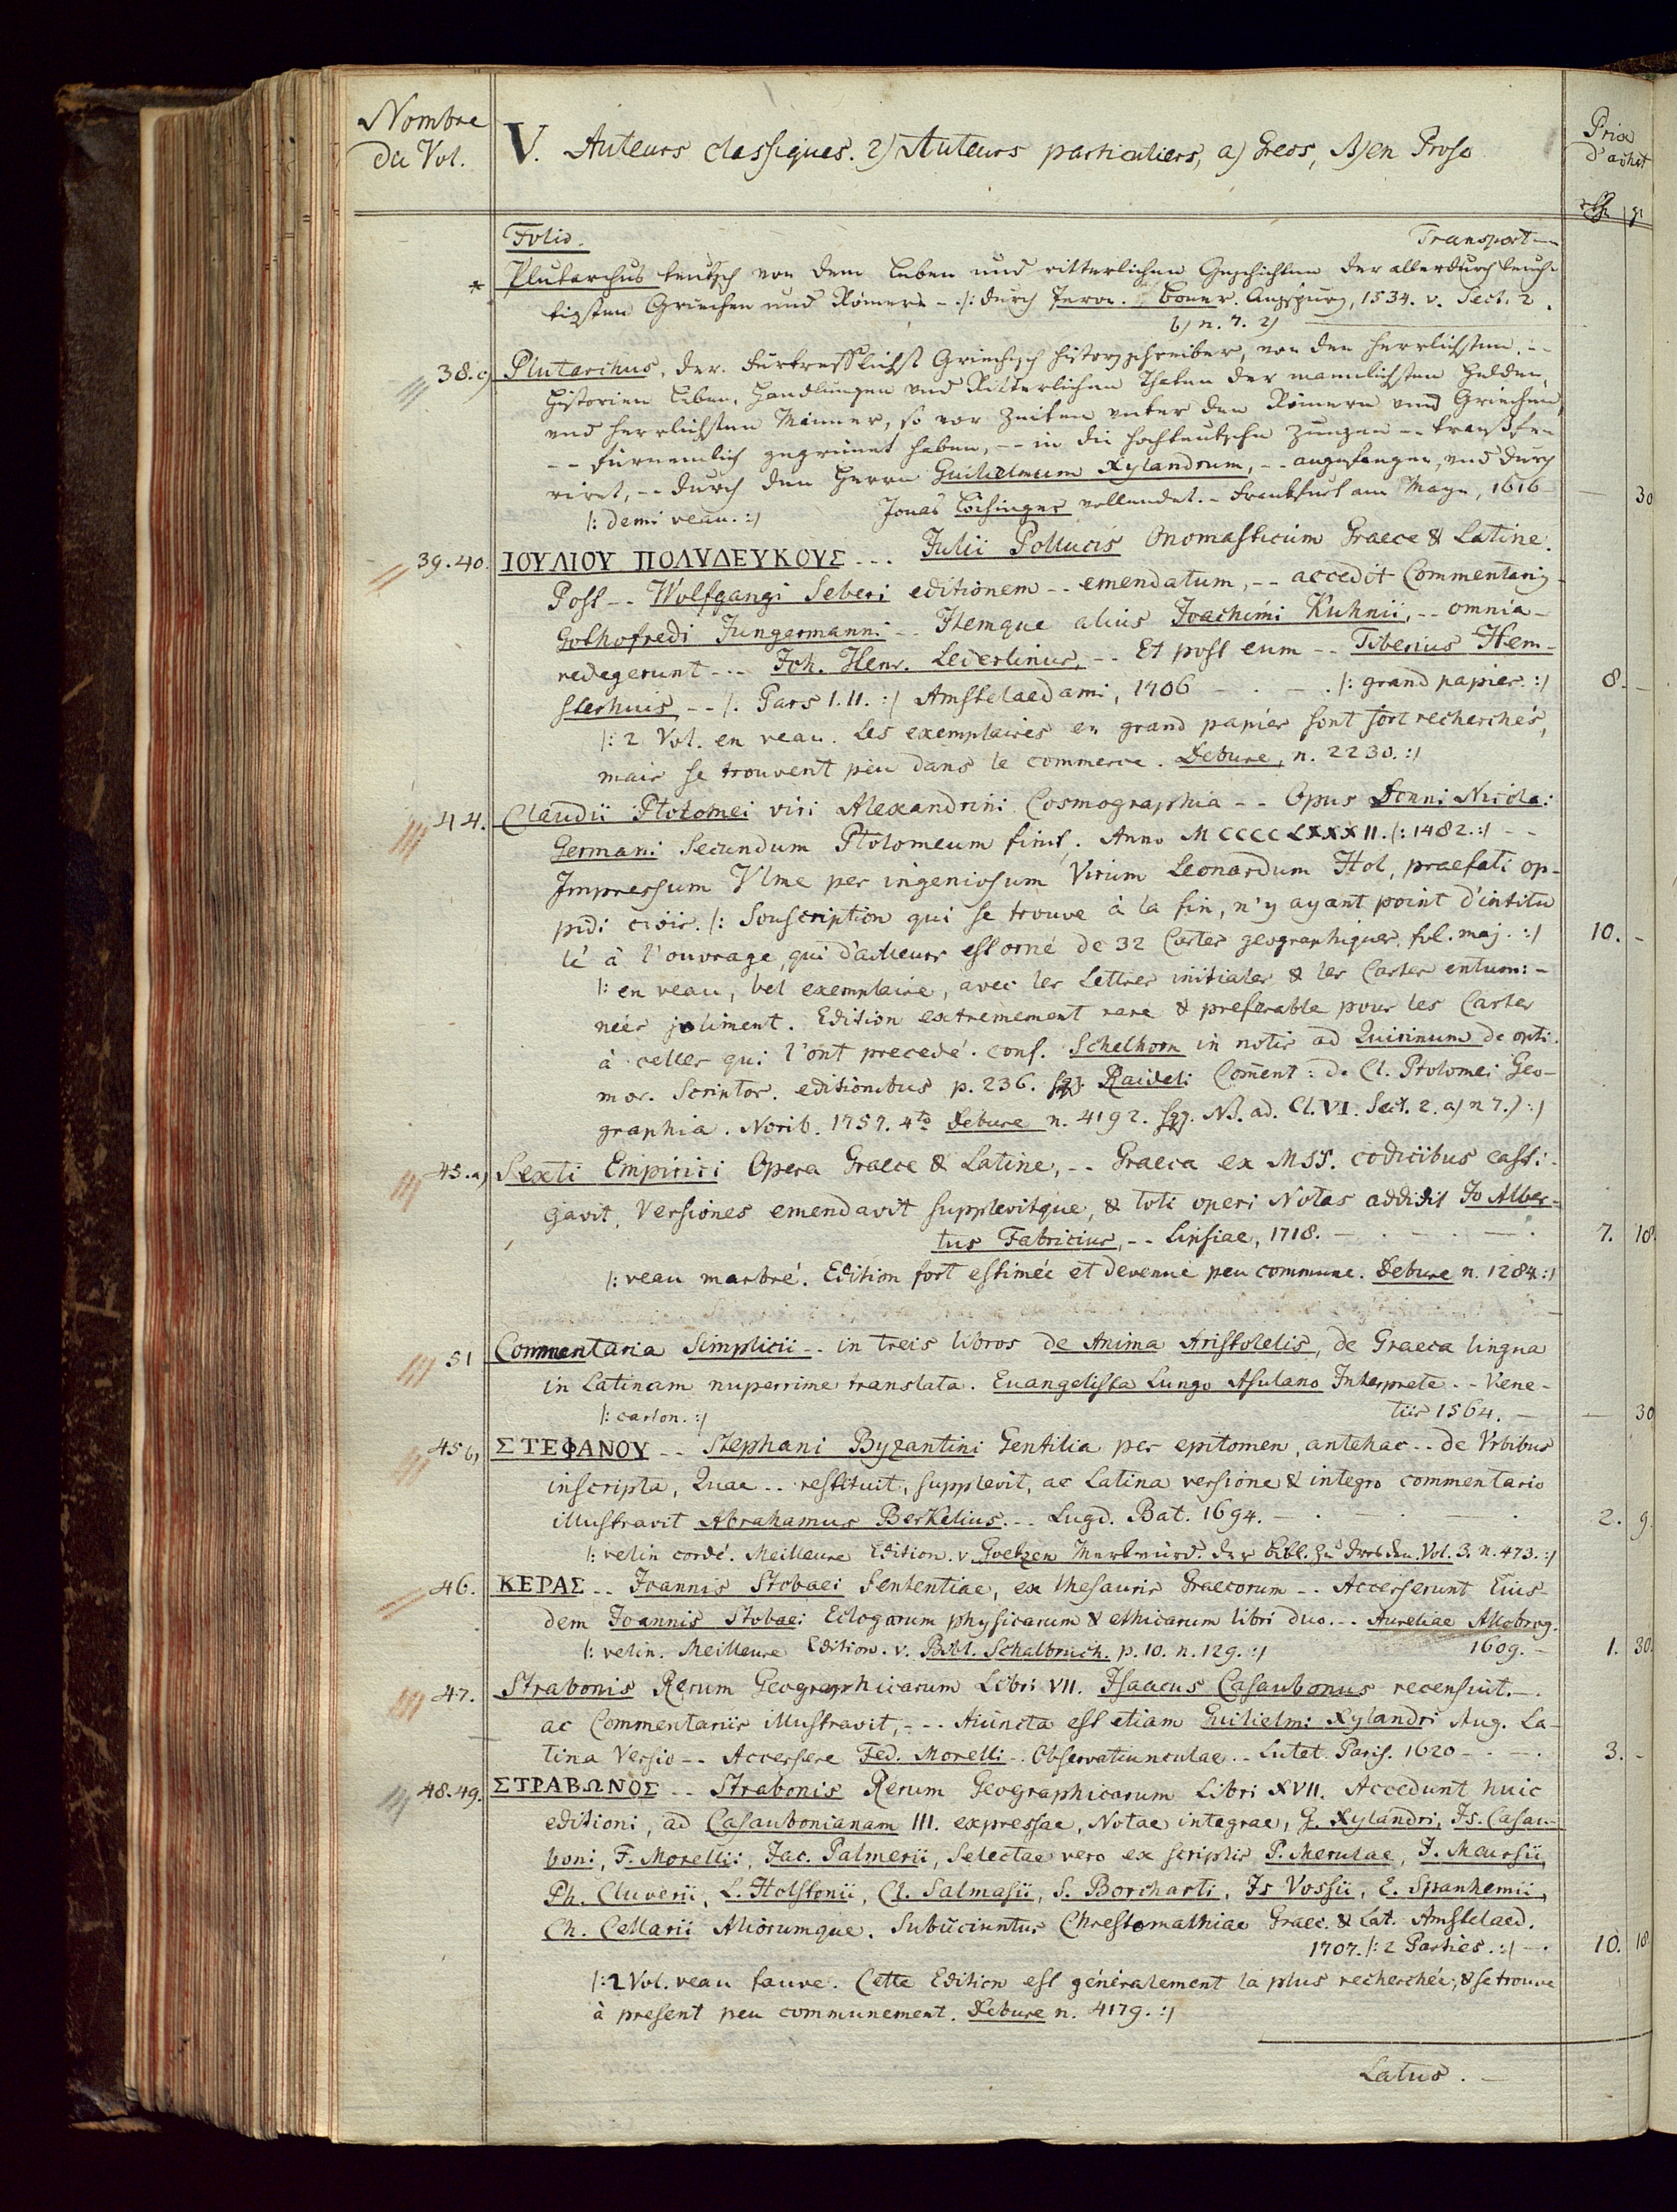 Nombre
du Vol.
V. Auteurs classiques. 2) Auteurs particuliers, a) Grecs, B) en Prose
Prix
d'achat
Folio.
Transport --
* Plutarchus teutsch von dem Leben und ritterlichen Geschichten der allerdurchleuch-
tigsten Griechen und Römern - /: durch Jeron. Boner. Augspurg, 1534. v. Sect. 2.
b) n. 7. 2)
38. c) Plutarchus, der fürtrefflichst Griechisch Historyschreiber, von den herrlichsten, --
Historien Leben, Handlungen und Ritterlichen Thaten der mannlichsten Helden,
und herrlichsten Männer, so vor Zeiten unter den Römern und Griechen,
-- fürnemlich gegrünet haben, -- in die hochteutsche Zungen -- transfe-
riret, -- durch den Herrn Guilielmum Xylandrum, -- angefangen, und durch
/: demi veau. :/ Jonas Löchinger vollendet. - Frankfurt am Mayn, 1616 — 30
39. 40. ΙΟΥΛΙΟΥ ΠΟΛΥΔΕΥΚΟΥΣ --- Julii Pollucis Onomasticum Graece & Latine.
Post -- Wolfgangi Seberi editionem -- emendatum, -- accedit Commentarig
Gothofredi Jungermanni -- Itemque alius Joachimi Kuhnii, -- omnia -
redegerunt --- Joh. Henr. Lederlinus, -- Et post eum -- Tiberius Hem-
sterhuis, -- /. Pars I. II. :/ Amstelaedami, 1706 - . - . /: grand papier. :/ 8. -
/: 2 Vol. en veau. Les exemplaires en grand papier sont fort recherchés,
mais se trouvent peu dans le commerce. Debure, n. 2230. :/
44. Claudii Ptolomei viri Alexandrini Cosmographia -- Opus Donni Nicolai
Germani Secundum Ptolomeum finit. Anno MCCCCLXXXII. /: 1482. :/ --
Impressum Vlme per ingeniosum Virum Leonardum Hol, praefati op-
pidi civis. /: Souscription qui se trouve à la fin, n'y ayant point d'intitu
lé à l'ouvrage, qui d'ailleurs est orné de 32 Cartes geographiques, fol. maj. :/ 10. -
/: en veau, bel exemplaire, avec les Lettres initiales & les Cartes enlumi-
neés joliment. Edition extremement rare & preferable pour les Cartes
à celles qui l'ont precedé. conf. Schelhorn in notis ad Quirinum de opti-
mor. Scriptor. editionibus p. 236. sqq. Raideli Coment: de Cl. Ptolomei Geo-
graphia. Norib. 1757. 4to Debure n. 4192. sqq. NB. ad. Cl. VI. Sect. 2. a) n 7.) :/
45. a) Sexti Empirici Opera Graece & Latine, -- Graeca ex MSS. codicibus casti-
gavit, Versiones emendavit supplevitque, & toti operi Notas addidit Jo Alber-
tus Fabricius, -- Lipsiae, 1718. 7. 18.
/: veau marbré. Edition fort estimée et devenue peu commune. Debure n. 1284. :/
51 Commentaria Simplicii -- in treis libros de Anima Aristotelis, de Graeca lingua
in Latinam nuperrime translata. Euangelista Lungo Asulano Interprete. -- Vene-
/: carton. :/ tiis 1564. — — 30
45 b) ΣΤΕΦΑΝΟΥ -- Stephani Byzantini Gentilia per epitomen, antehac -- de Vrbibus
inscripta, Quae -- restituit, supplevit, ac Latina versione & integro commentario
illustravit Abrahamus Berkelius. -- Lugd. Bat. 1694. 2. 9.
/: velin cordé. Meilleure Edition. v. Goetzen Merkwürd. der Bibl. zu Dresden. Vol. 3. n. 473. :/
46. ΚΕΡΑΣ -- Joannis Stobaei Sententiae, ex thesauris Graecorum -- Accesserunt Eius-
dem Joannis Stobaei Eclogarum physicarum & ethicarum libri duo. -- Aureliae Allobrog.
/: velin. Meilleure Edition. v. Bibl. Schalbruch. p. 10. n. 129. :/ 1609. - 1. 30.
47. Strabonis Rerum Geographicarum Libri VII. Isaacus Casaubonus recensuit. -.
ac Commentariis illustravit, --- Aiuncta est etiam Guilielmi Xylandri Aug. La-
tina Versio -- Accessere Fed. Morelli -. Observatiunculae. -- Lutet. Paris. 1620 -. -. 3. -
48. 49. ΣΤΡΑΒΩΝΟΣ -- Strabonis Rerum Geographicarum Libri XVII. Accedunt huic
editioni, ad Casaubonianam III. expressae, Notae integrae, G. Xylandri, Is. Casau-
boni, F. Morellii, Jac. Palmerii, Selectae vero ex scriptis P. Merulae, J. Meursii,
Ph. Cluverii, L. Holstenii, Cl. Salmasii, S. Bocharti, Is Vossii, E. Spanhemii,
Ch. Cellarii Aliorumque. Subiiciuntur Chrestomathiae Graec. & Lat. Amstelaed.
1707. /: 2 Parties. :/ -. 10. 18
/: 2 Vol. veau fauve. Cette Edition est généralement la plus recherchée, & se trouve
à present peu communement. Debure n. 4179. :/
Latus. -